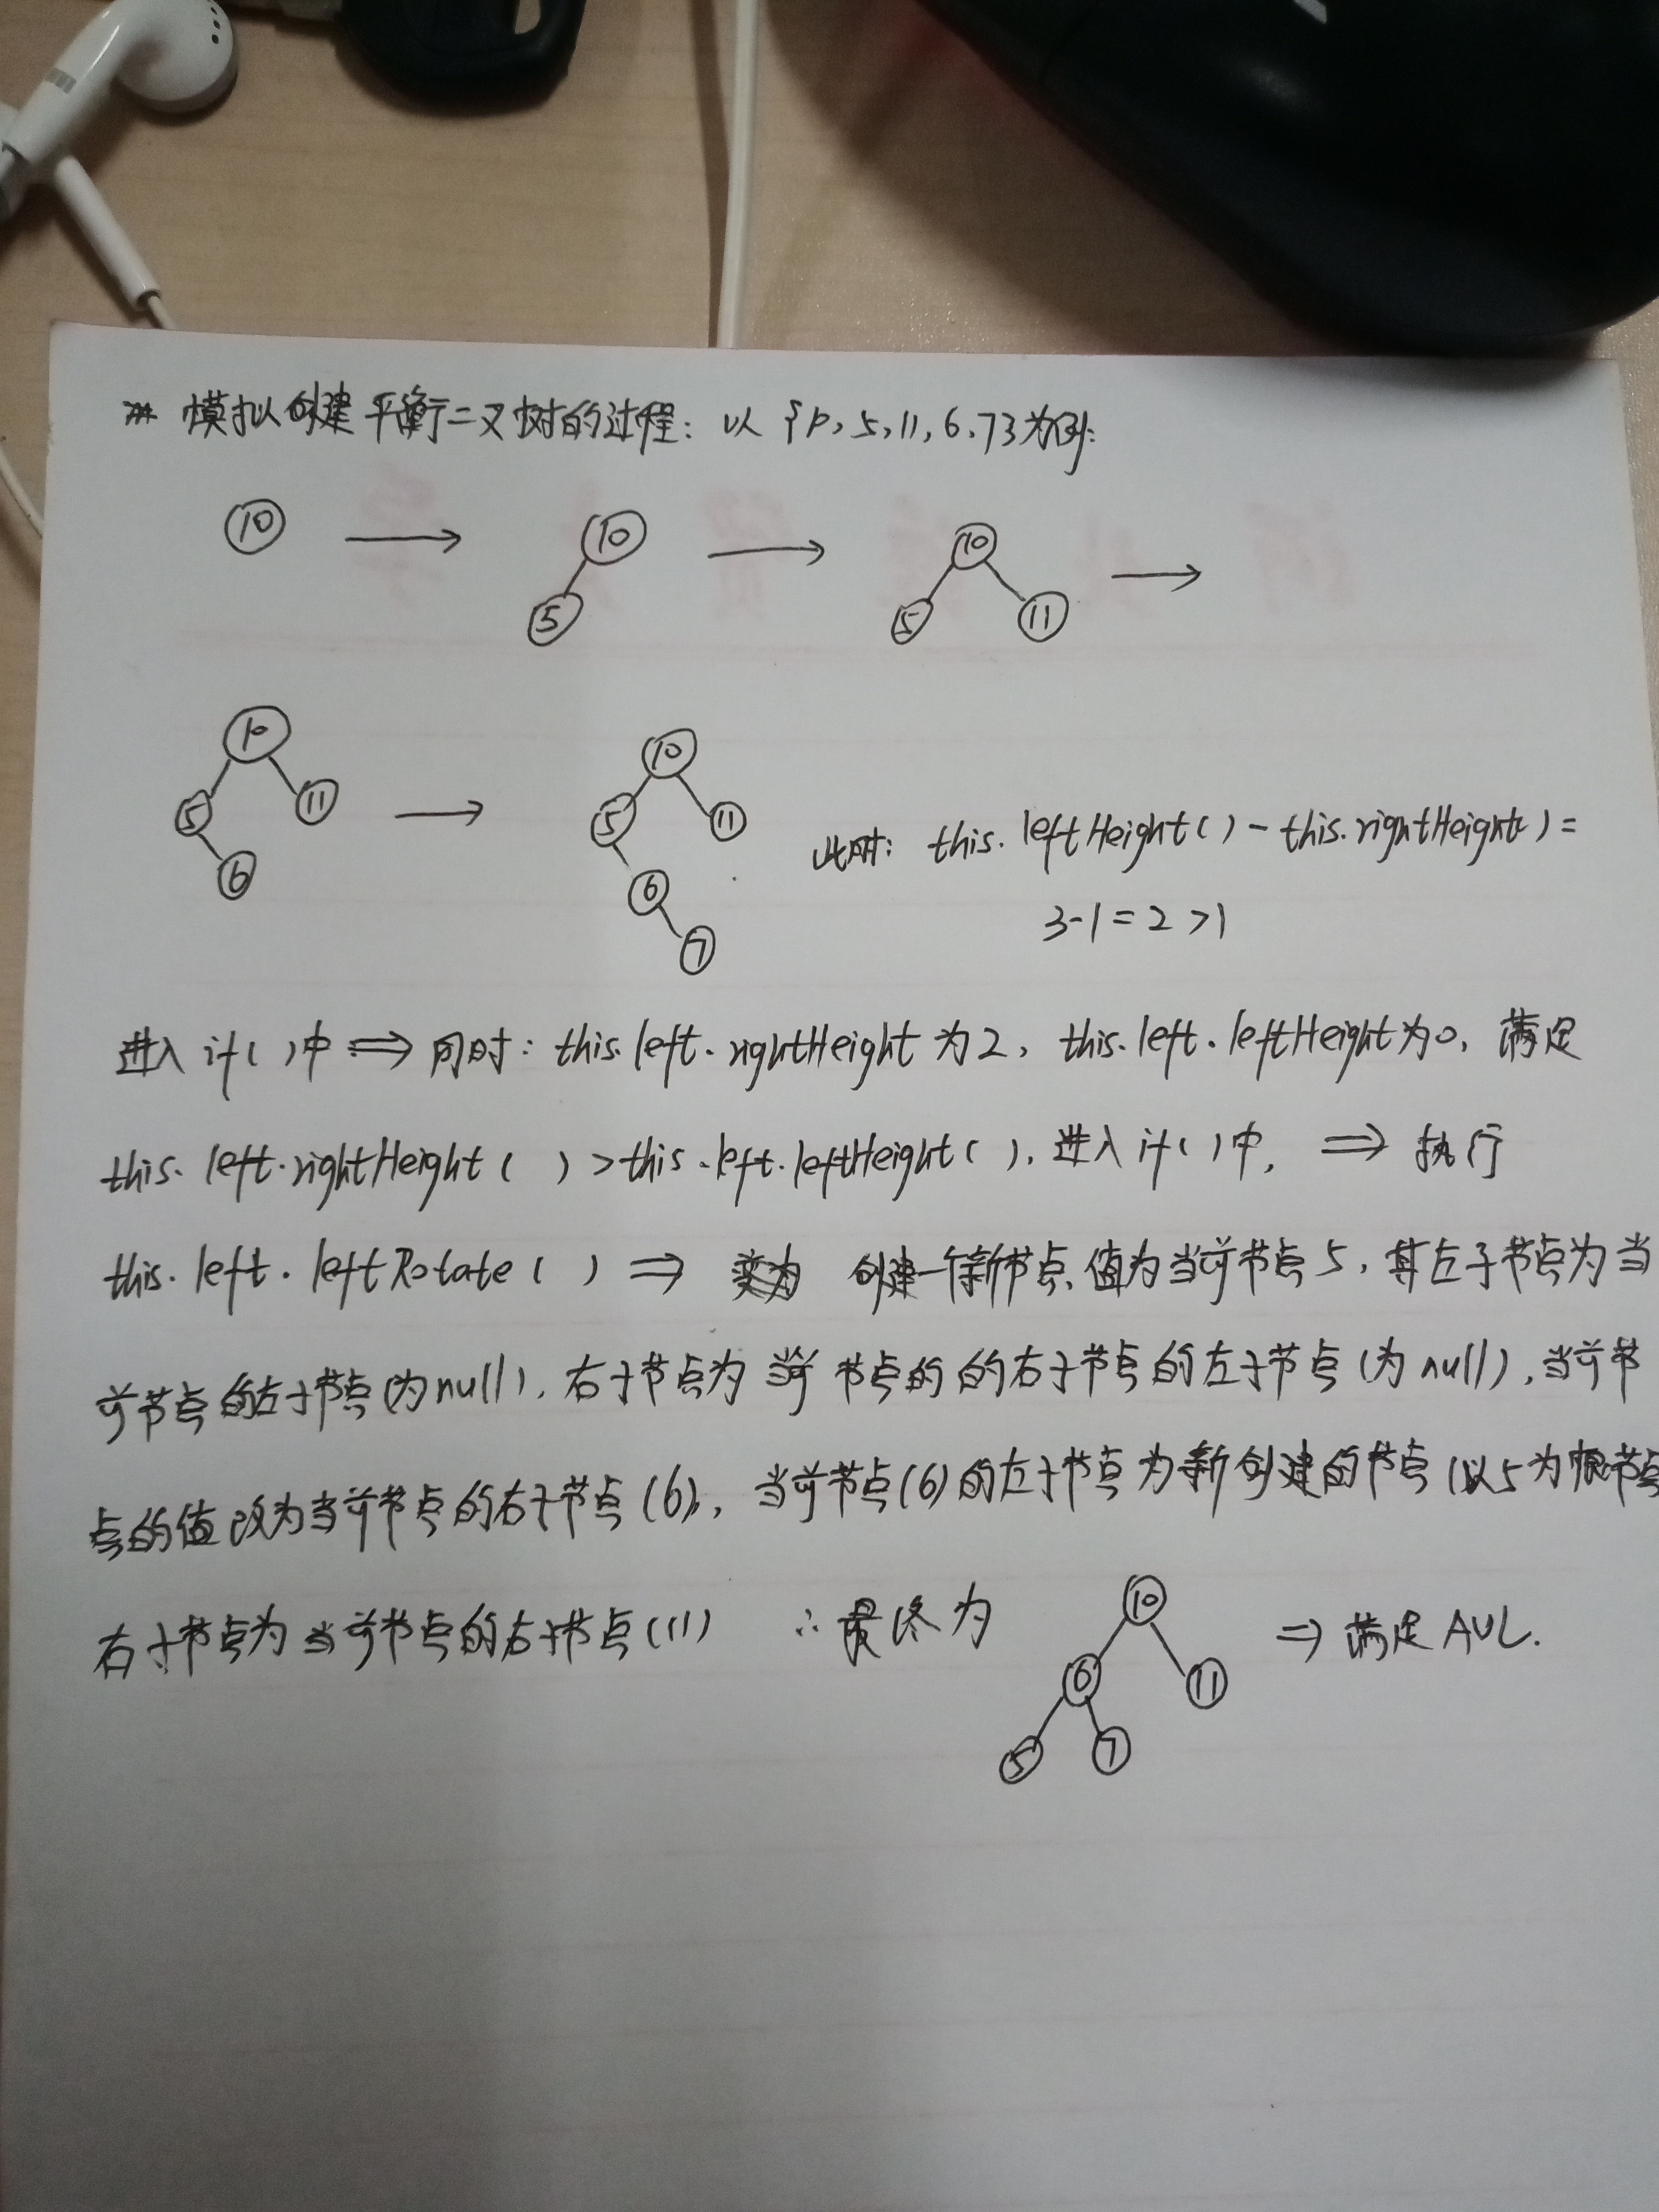 ※ 模拟创建平衡二叉树的过程: 以 {10, 5, 11, 6, 7}为例:
10 → 10 → 10 →
5 5 11
10 10
5 11 → 5 11 此时: this.leftHeight() - this.rightHeight() =
6 6 3-1=2>1
7
进入 if( )中 ⇒ 同时: this.left.rightHeight 为2, this.left.leftHeight为0, 满足
this.left.rightHeight( ) > this.left.leftHeight( ), 进入 if( )中, ⇒ 执行
this.left.leftRotate( ) ⇒ 创建一个新节点, 值为当前节点5, 其左子节点为当
前节点的左子节点(为null), 右子节点为 当前 节点的的右子节点的左子节点(为null), 当前节
点的值改为当前节点的右子节点(6), 当前节点(6)的左子节点为新创建的节点(以5为根节点
右子节点为当前节点的右子节点(11) ∴最终为 10 ⇒ 满足 AVL.
6 11
5 7